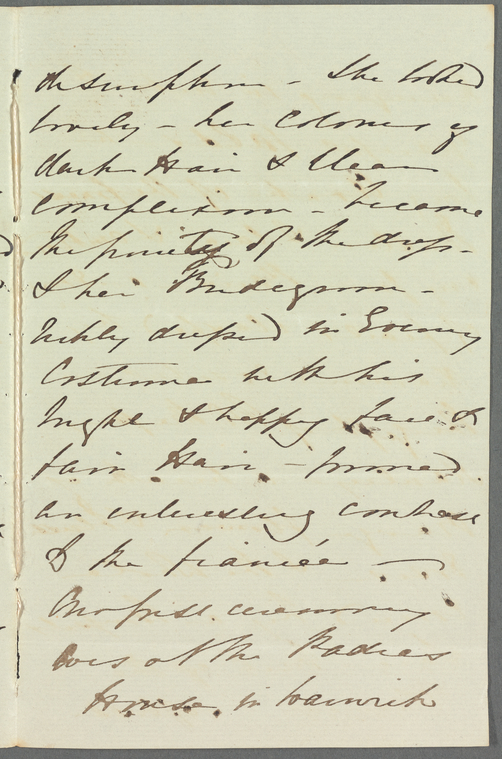 description - She looked
lovely - her colour of
dark Hair & Clear
complexion - became
the purity of the dress -
& her Bridegroom -
richly dressed in Evening
Costume with his
bright & happy face &
fair Hair - formed
an interesting contrast
to the fiancée -
Our first ceremony
was at the
House in Warwick